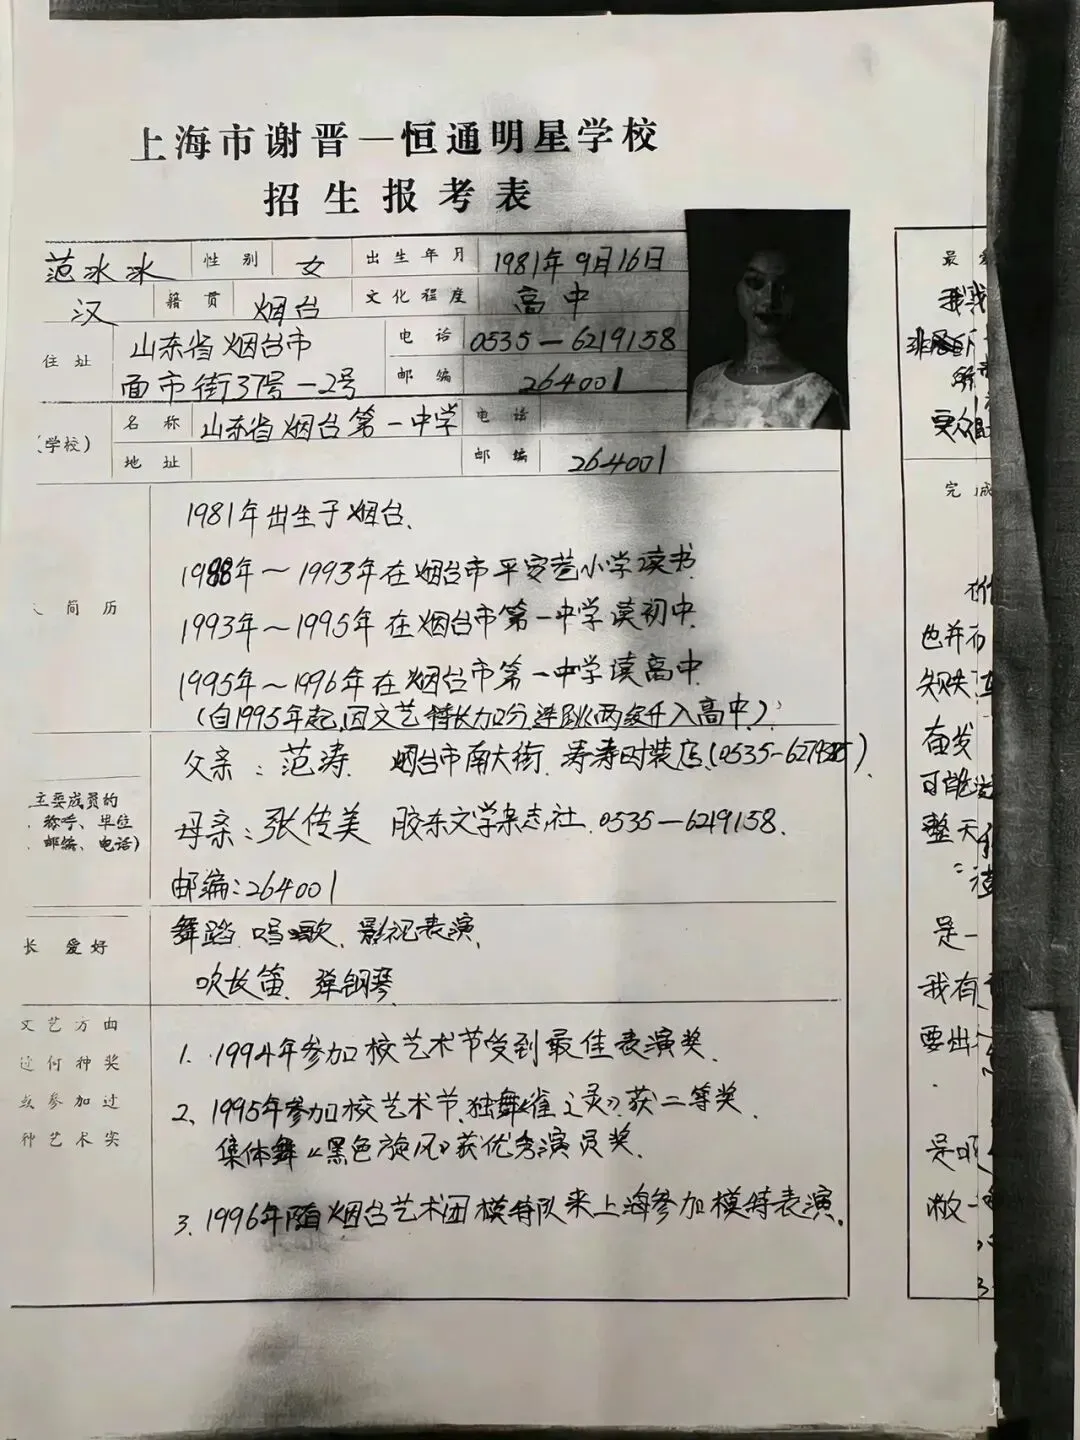 上海市谢晋—恒通明星学校
招生报考表
范冰冰 性别 女 出生年月 1981年9月16日
汉 籍贯 烟台 文化程度 高中
住址 山东省烟台市 电话 0535—6219158
面市街37号—2号 邮编 264001
(学校) 名称 山东省烟台第一中学 电话
地址 邮编 264001
简历
1981年出生于烟台.
1988年～1993年在烟台市平安巷小学读书
1993年～1995年在烟台市第一中学读初中
1995年～1996年在烟台市第一中学读高中
(自1995年起,因文艺特长加分,连跳两级升入高中)
主要成员的
称呼、单位
邮编、电话)
父亲:范涛 烟台市南大街 涛涛时装店
母亲:张传美 胶东文学杂志社 0535—6219158.
邮编:264001
长 爱好
舞蹈 唱歌、影视表演,
吹长笛、弹钢琴
文艺方面
过何种奖
或参加过
种艺术实
1. 1994年参加校艺术节受到最佳表演奖.
2. 1995年参加校艺术节.独舞《雀之灵》获二等奖.
集体舞《黑色旋风》获优秀演员奖.
3. 1996年随烟台艺术团模特队来上海参加模特表演.
最
完成
也并
奋发
可能
整天
是一
我有
要出
是